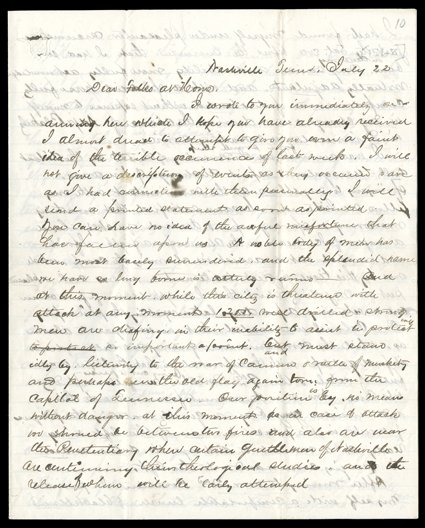 10
Nashville Tenn. July 22
Dear Folks at Home.
I wrote to you immediately on
arriving here which I hope you have already received
I almost dread to attempt to give you even a faint
idea of the terrible occurrence of last week. I will
not give a description of events as they occurred save
as I had connection with them personally. I will
send a printed statement as soon as printed
You can have no idea of the awful misfortune that
has fallen upon us. A noble body of men has
been most basely surrendered and the splendid name
we have so long borne is utterly ruined. And
at this moment while this city is threatened with
attack at any moment well drilled & strong
men are chafing in their inability to assist in protecting
so important a point. but must stand
idly by listening to the roar of Cannon & rattle of musketry
and perhaps see the old flag again torn from the
Capitol of Tennessee. Our position by no means
without danger. at this moment as in case of attack
we should be between two fires and also are near
the Penetentiary where certain Gentlemen of Nashville
are continuing their theological studies, and the
release of whom will be early attempted